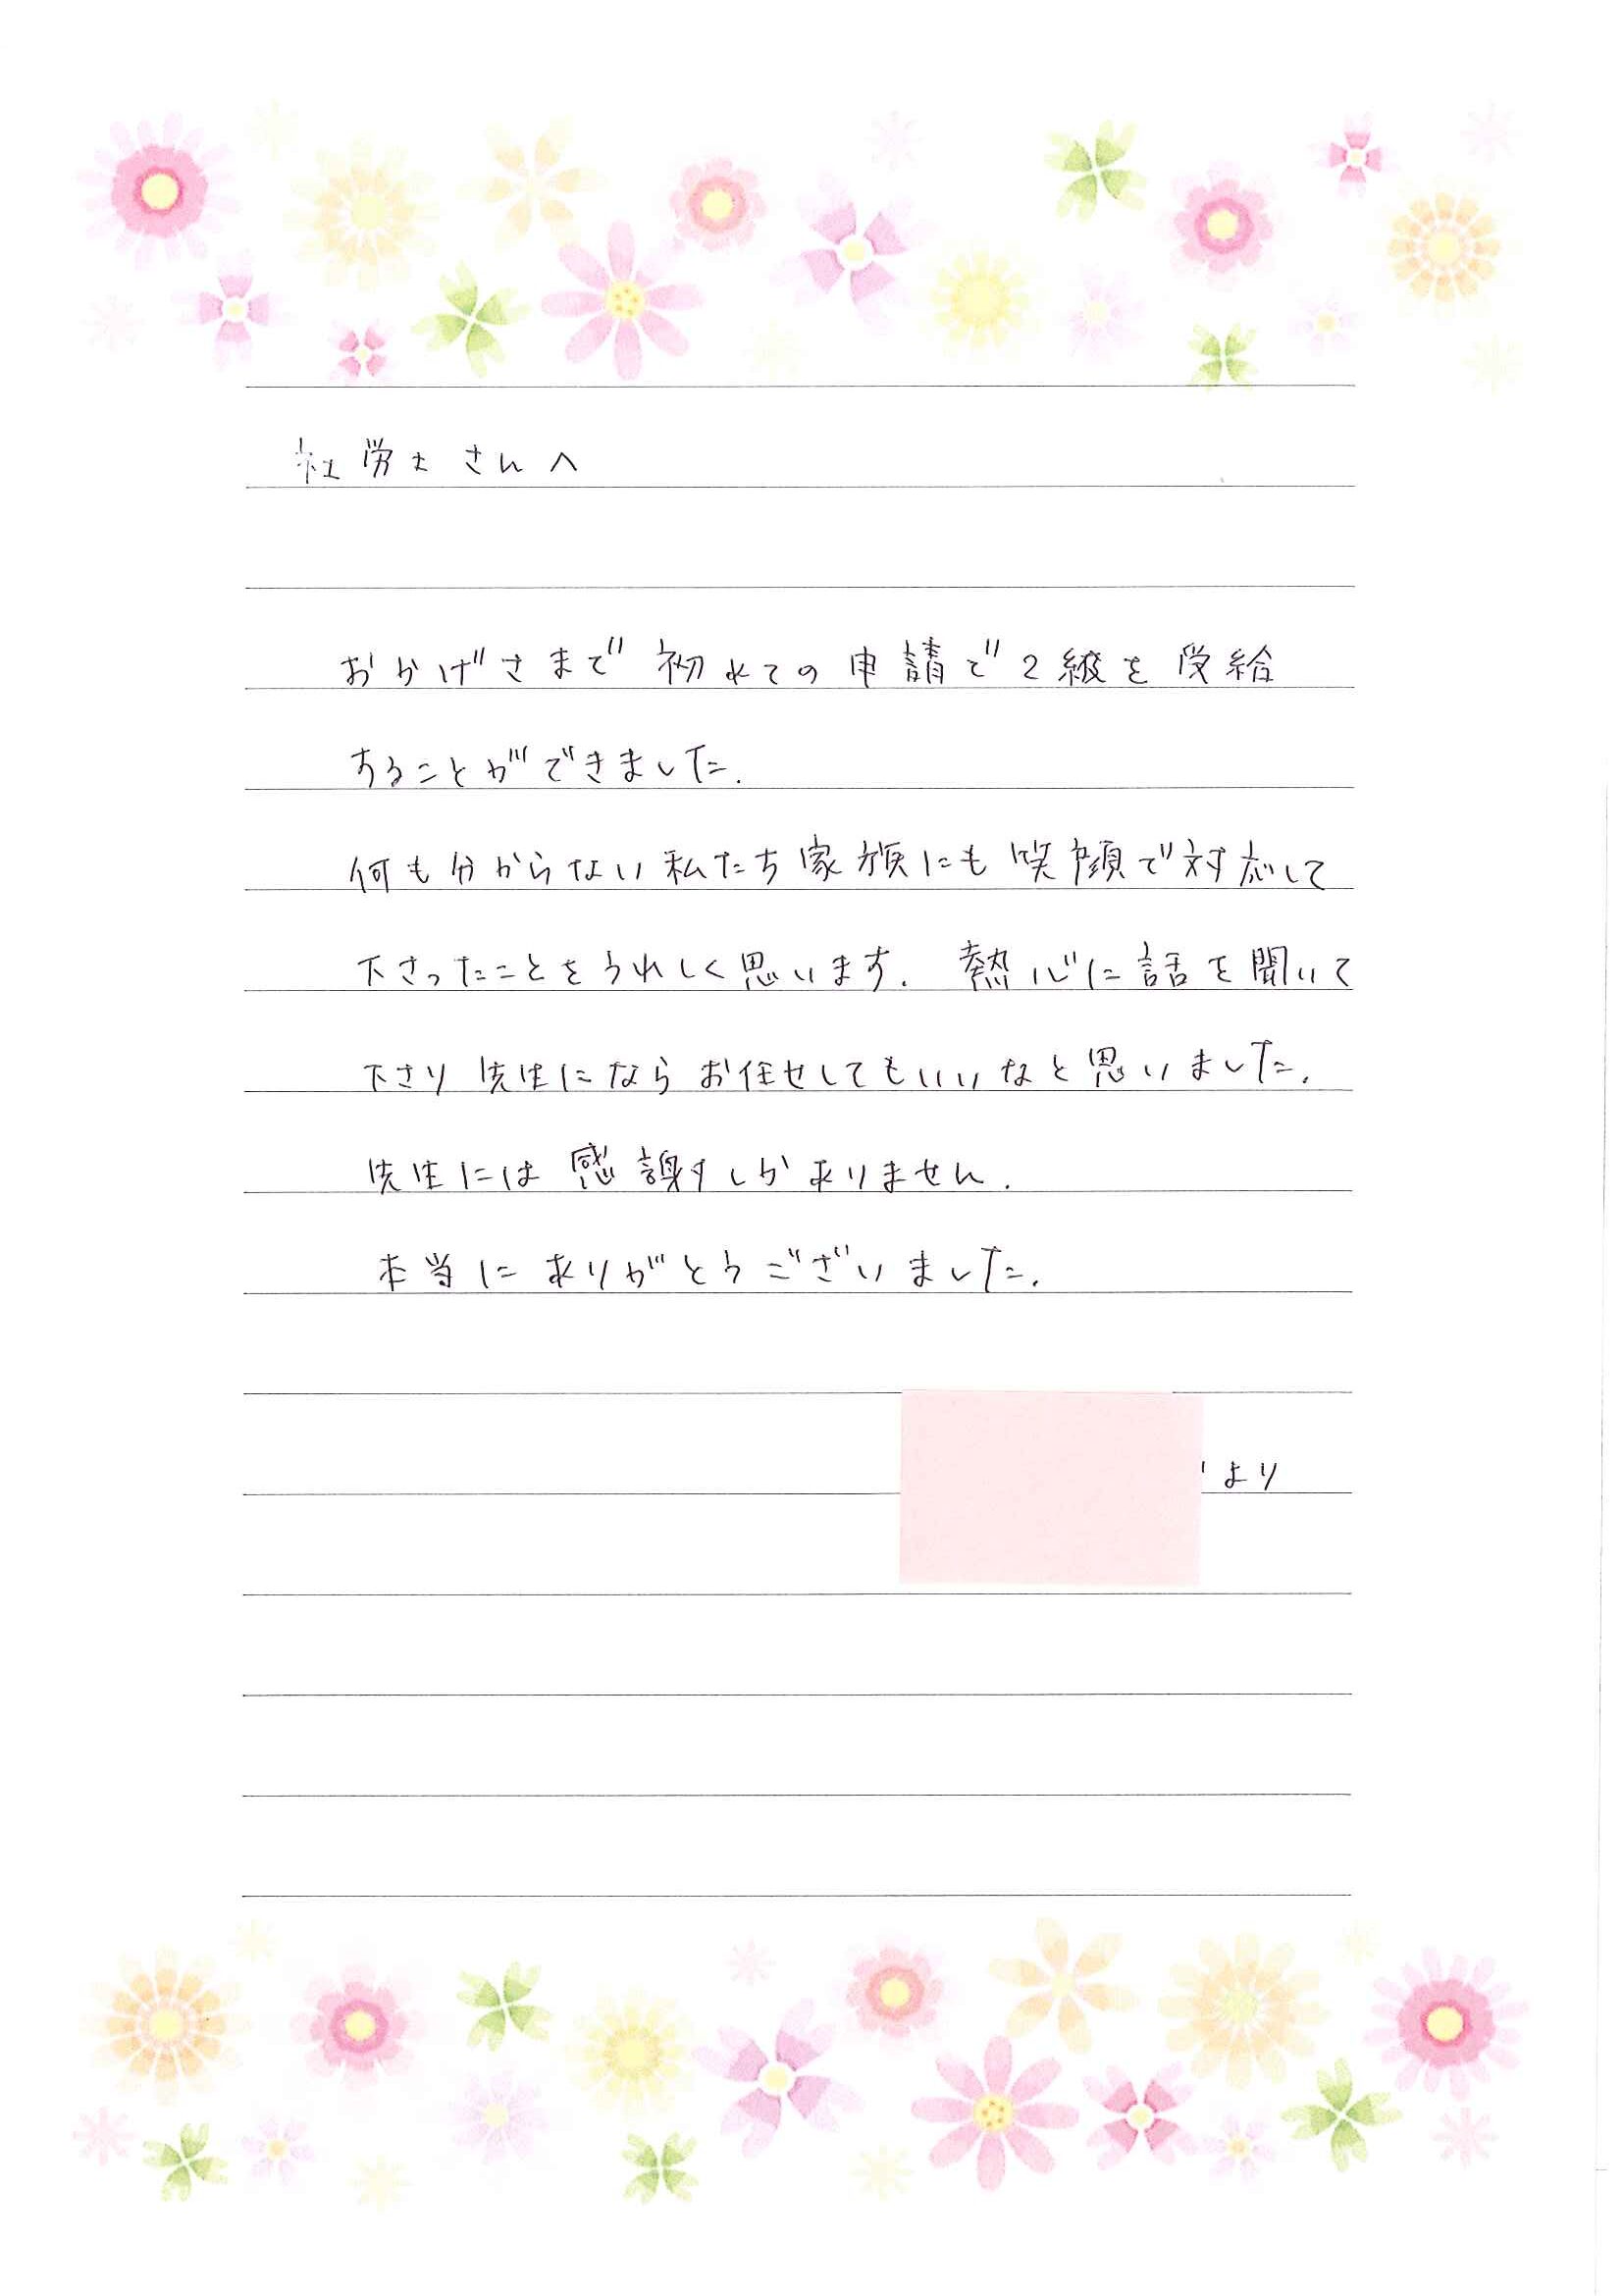 社労士さんへ
おかげさまで初めての申請で2級を受給
することができました.
何も分からない私たち家族にも笑顔で対応して
下さったことをうれしく思います. 熱心に話を聞いて
下さり先生にならお任せしてもいいなと思いました.
先生には感謝しかありません.
本当にありがとうございました.
より